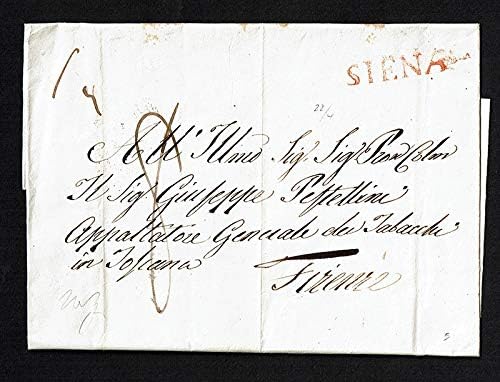 SIENA
22/6
8
All' Illmo Sig. Sig. Pron Colmo
Il Sig. Giuseppe Pestellini
Appaltatore Generale dei Tabacchi
in Toscana
Firenze